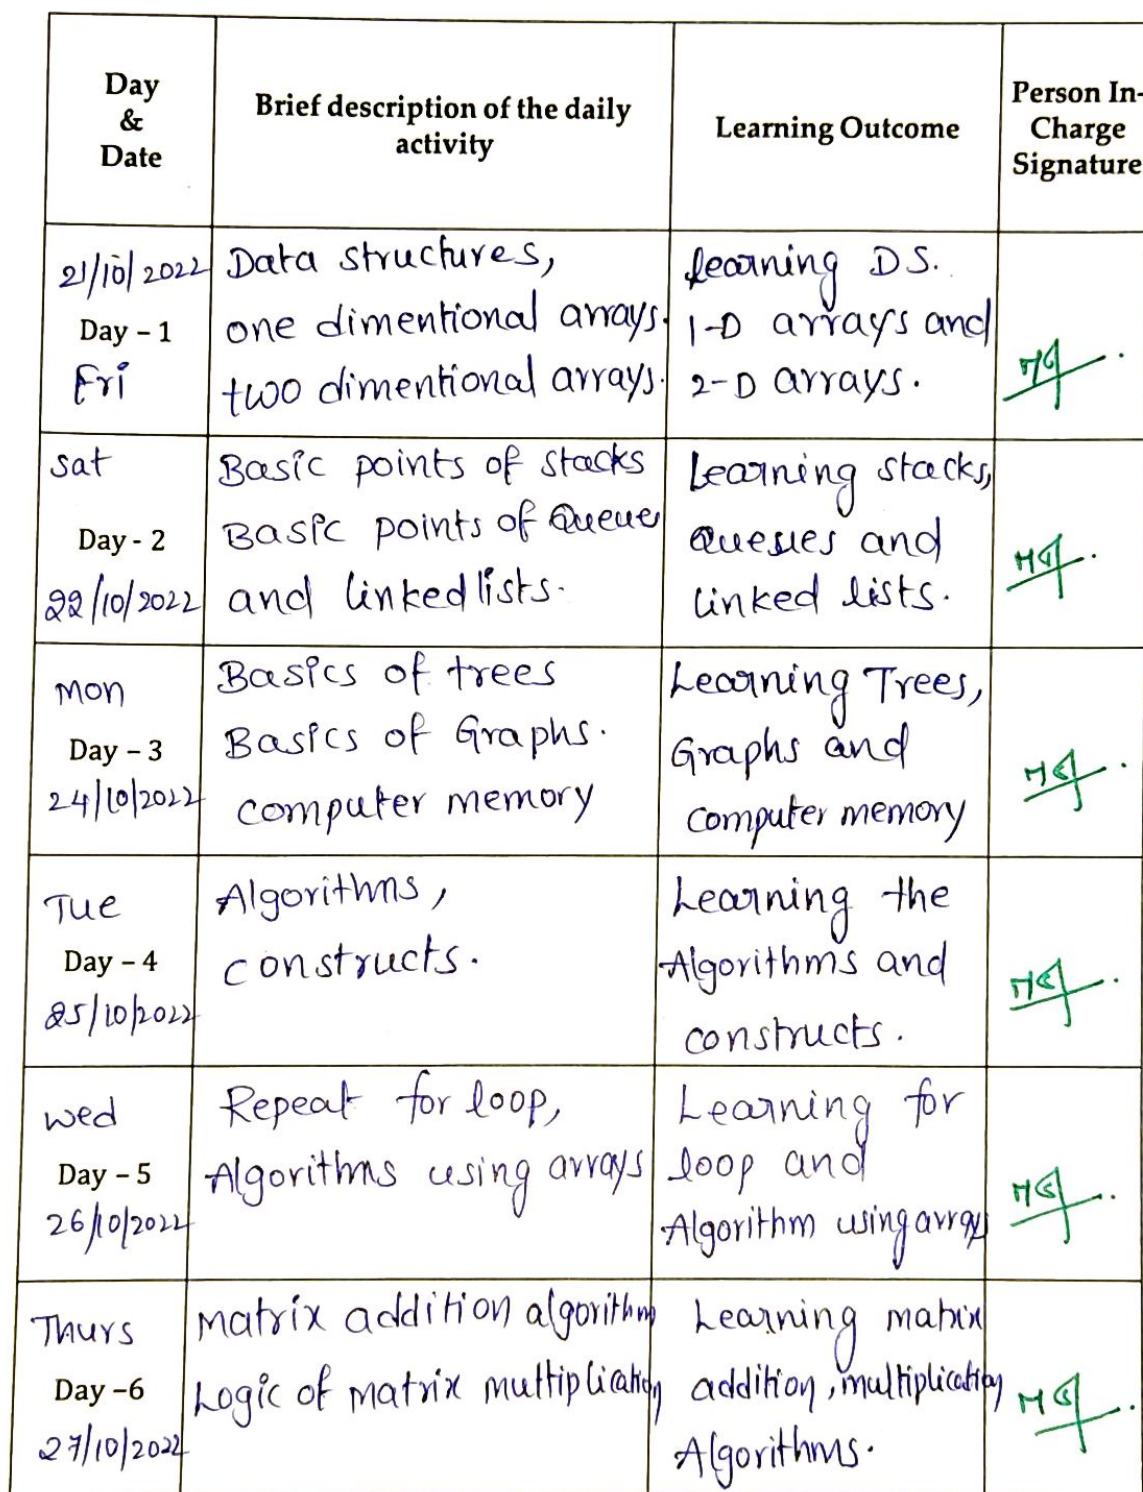 Day
&
Date
Brief description of the daily
activity
Learning Outcome
Person In-
Charge
Signature
21/10/2022
Day – 1
Fri
Data structures,
one dimentional arrays.
two dimentional arrays.
learning DS.
1-D arrays and
2-D arrays.
Sat
Day - 2
22/10/2022
Basic points of stacks
Basic points of Queue
and linked lists.
Learning stacks,
Queues and
linked lists.
Mon
Day – 3
24/10/2022
Basics of trees
Basics of Graphs.
computer memory
Learning Trees,
Graphs and
computer memory
Tue
Day – 4
25/10/2022
Algorithms,
constructs.
Learning the
Algorithms and
constructs.
wed
Day – 5
26/10/2022
Repeat for loop,
Algorithms using arrays
Learning for
loop and
Algorithm using arrays
Thurs
Day –6
27/10/2022
matrix addition algorithm
Logic of matrix multiplication
Learning matrix
addition, multiplication
Algorithms.